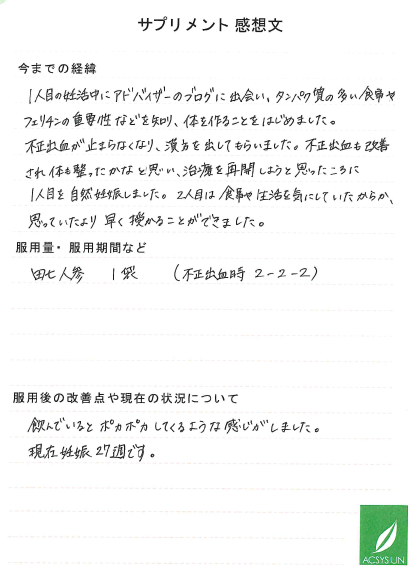 サプリメント 感想文
今までの経緯
1人目の妊活中にアドバイザーのブログに出会い、タンパク質の多い食事や
フェリチンの重要性などを知り、体を作ることをはじめました。
不正出血が止まらなくなり、漢方を出してもらいました。不正出血も改善
され体も整ったかなと思い、治療を再開しようと思ったころに
1人目を自然妊娠しました。2人目は食事や生活を気にしていたからか、
思っていたより早く授かることができました。
服用量・服用期間など
田七人参　1袋　（不正出血時 2-2-2）
服用後の改善点や現在の状況について
飲んでいるとポカポカしてくるような感じがしました。
現在妊娠27週です。
ACSYSUN